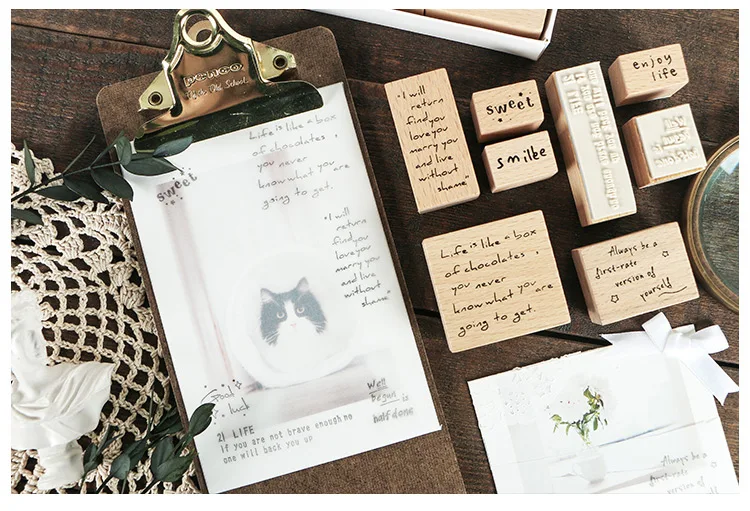 Life is like a box
of chocolates ,
you never
know what you are
going to get.
sweet
"I will
return
find you
love you
marry you
and live
without
shame"
good
luck
Well
begun is
half done
21 LIFE
If you are not brave enough no
one will back you up
"I will
return
find you
love you
marry you
and live
without
shame"
sweet
smilke
enjoy
life
Life is like a box
of chocolates ,
you never
know what you are
going to get.
Always be a
first-rate
version of
yourself
Always be a
first-rate
version of